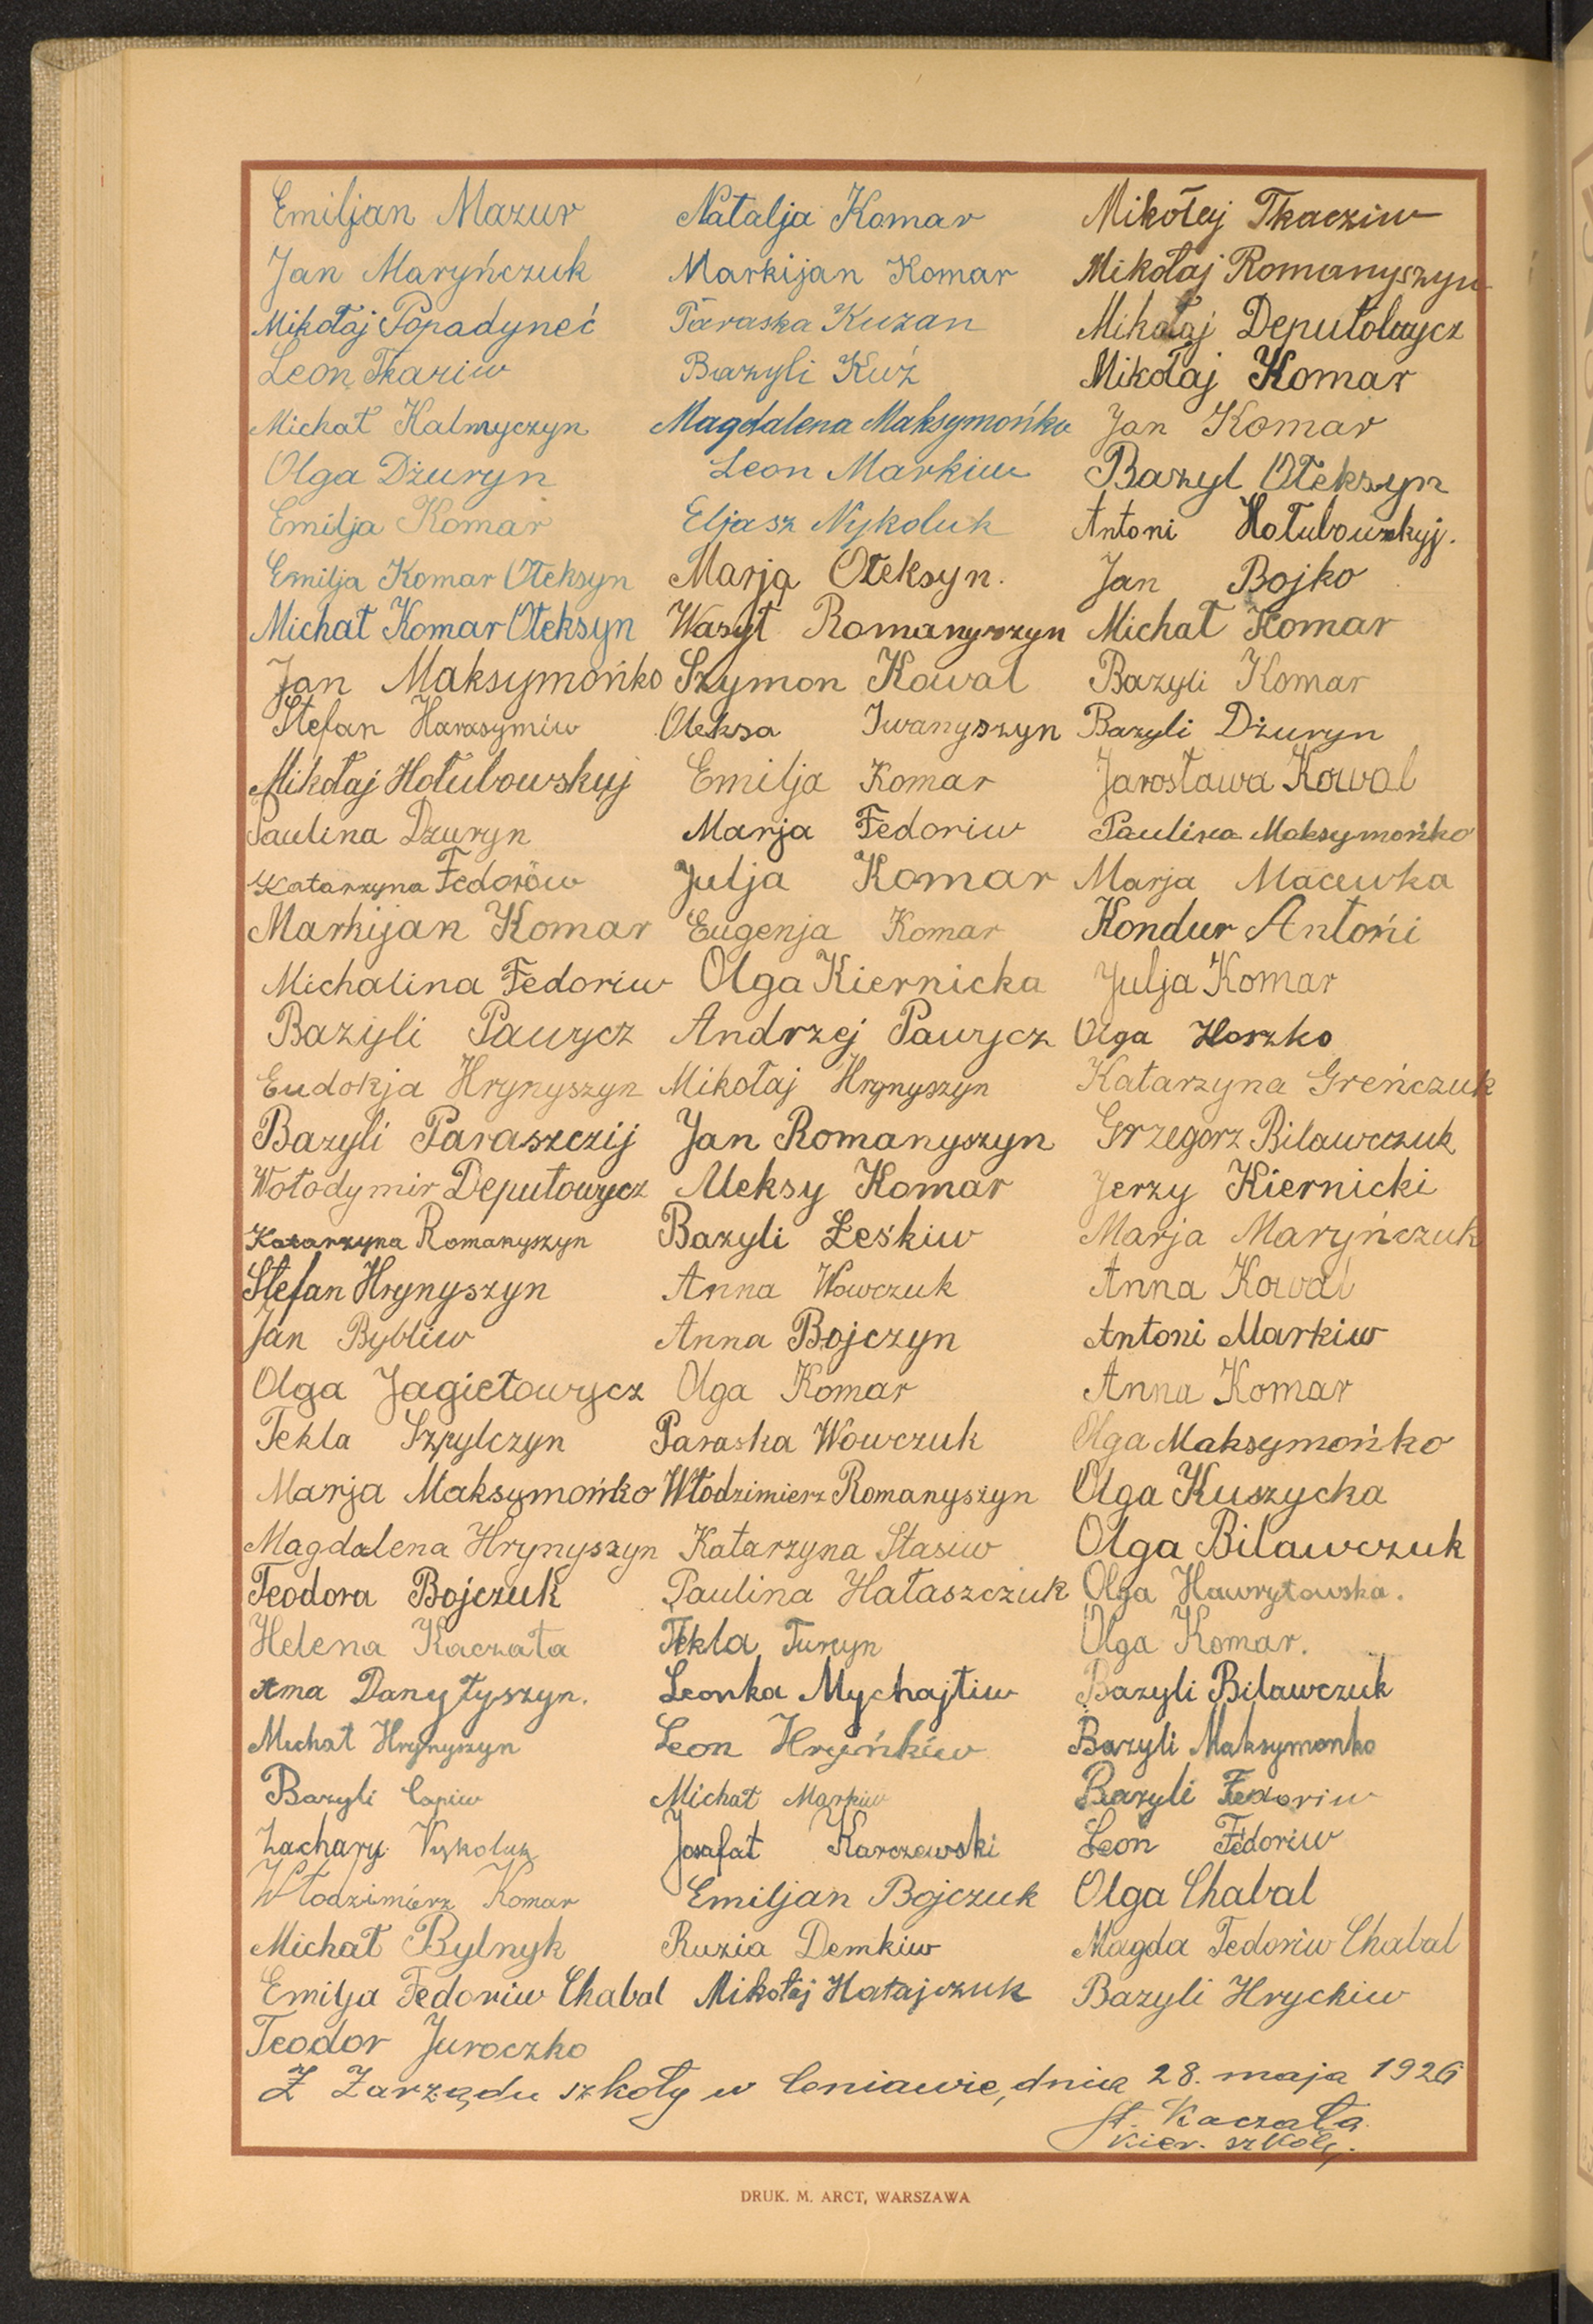 Emiljan Mazur Natalja Komar Mikołaj Tkacziw
Jan Maryńczuk Markijan Komar Mikołaj Romanyszyn
Mikołaj Popadyneć Paraska Kuzan Mikołaj Deputowycz
Leon Tkaziw Bazyli Kuź Mikołaj Komar
Michał Kalmyczyn Magdalena Maksymońko Jan Komar
Olga Dżuryn Leon Markiw Bazyl Ołeksyn
Emilja Komar Eljasz Nykoluk Antoni Hołubowskyj.
Emilja Komar Ołeksyn Marja Ołeksyn. Jan Bojko
Michał Komar Ołeksyn Wasył Romanyszyn Michał Komar
Jan Maksymońko Szymon Kowal Bazyli Komar
Stefan Harasymiw Oleksa Iwanyszyn Bazyli Dżuryn
Mikołaj Hołubowskyj Emilja Komar Jarosława Kowal
Paulina Dżuryn Marja Fedoriw Paulina Maksymońko
Katarzyna Fedorów Julja Komar Marja Macewka
Markijan Komar Eugenja Komar Kondur Antoni
Michalina Fedoriw Olga Kiernicka Julja Komar
Bazyli Pawycz Andrzej Pawycz Olga Horzko
Eudokja Hrynyszyn Mikołaj Hrynyszyn Katarzyna Greńczuk
Bazyli Paraszczij Jan Romanyszyn Grzegorz Bilawczuk
Wołodymir Deputowycz Aleksy Komar Jerzy Kiernicki
Katarzyna Romanyszyn Bazyli Leśkiw Marja Maryńczuk
Stefan Hrynyszyn Anna Wowczuk Anna Kowal
Jan Bybliw Anna Bojczyn Antoni Markiw
Olga Jagiełowycz Olga Komar Anna Komar
Tekla Szpylczyn Paraska Wowczuk Olga Maksymońko
Marja Maksymońko Włodzimierz Romanyszyn Olga Kuszycka
Magdalena Hrynyszyn Katarzyna Stasiw Olga Bilawczuk
Teodora Bojczuk Paulina Hałaszczuk Olga Hawryłowska.
Helena Kaczała Tekla Turcyn Olga Komar.
Anna Danyłyszyn. Leonka Mychajliw Bazyli Bilawczuk
Michał Hrynyszyn Leon Hryńkiw Bazyli Maksymonko
Bazyli Capiw Michał Markiw Bazyli Fedoriw
Zachary Nykoluk Josafat Karczewski Leon Fedoriw
Włodzimierz Komar Emiljan Bojczuk Olga Chabal
Michał Bylnyk Ruzia Demkiw Magda Fedoriw Chabal
Emilja Fedoriw Chabal Mikołaj Hałajczuk Bazyli Hryckiw
Teodor Juroczko
Z Zarządu szkoły w Ceniawie, dnia 28. maja 1926
St. Kaczała
kier. szkoły.
DRUK. M. ARCT, WARSZAWA